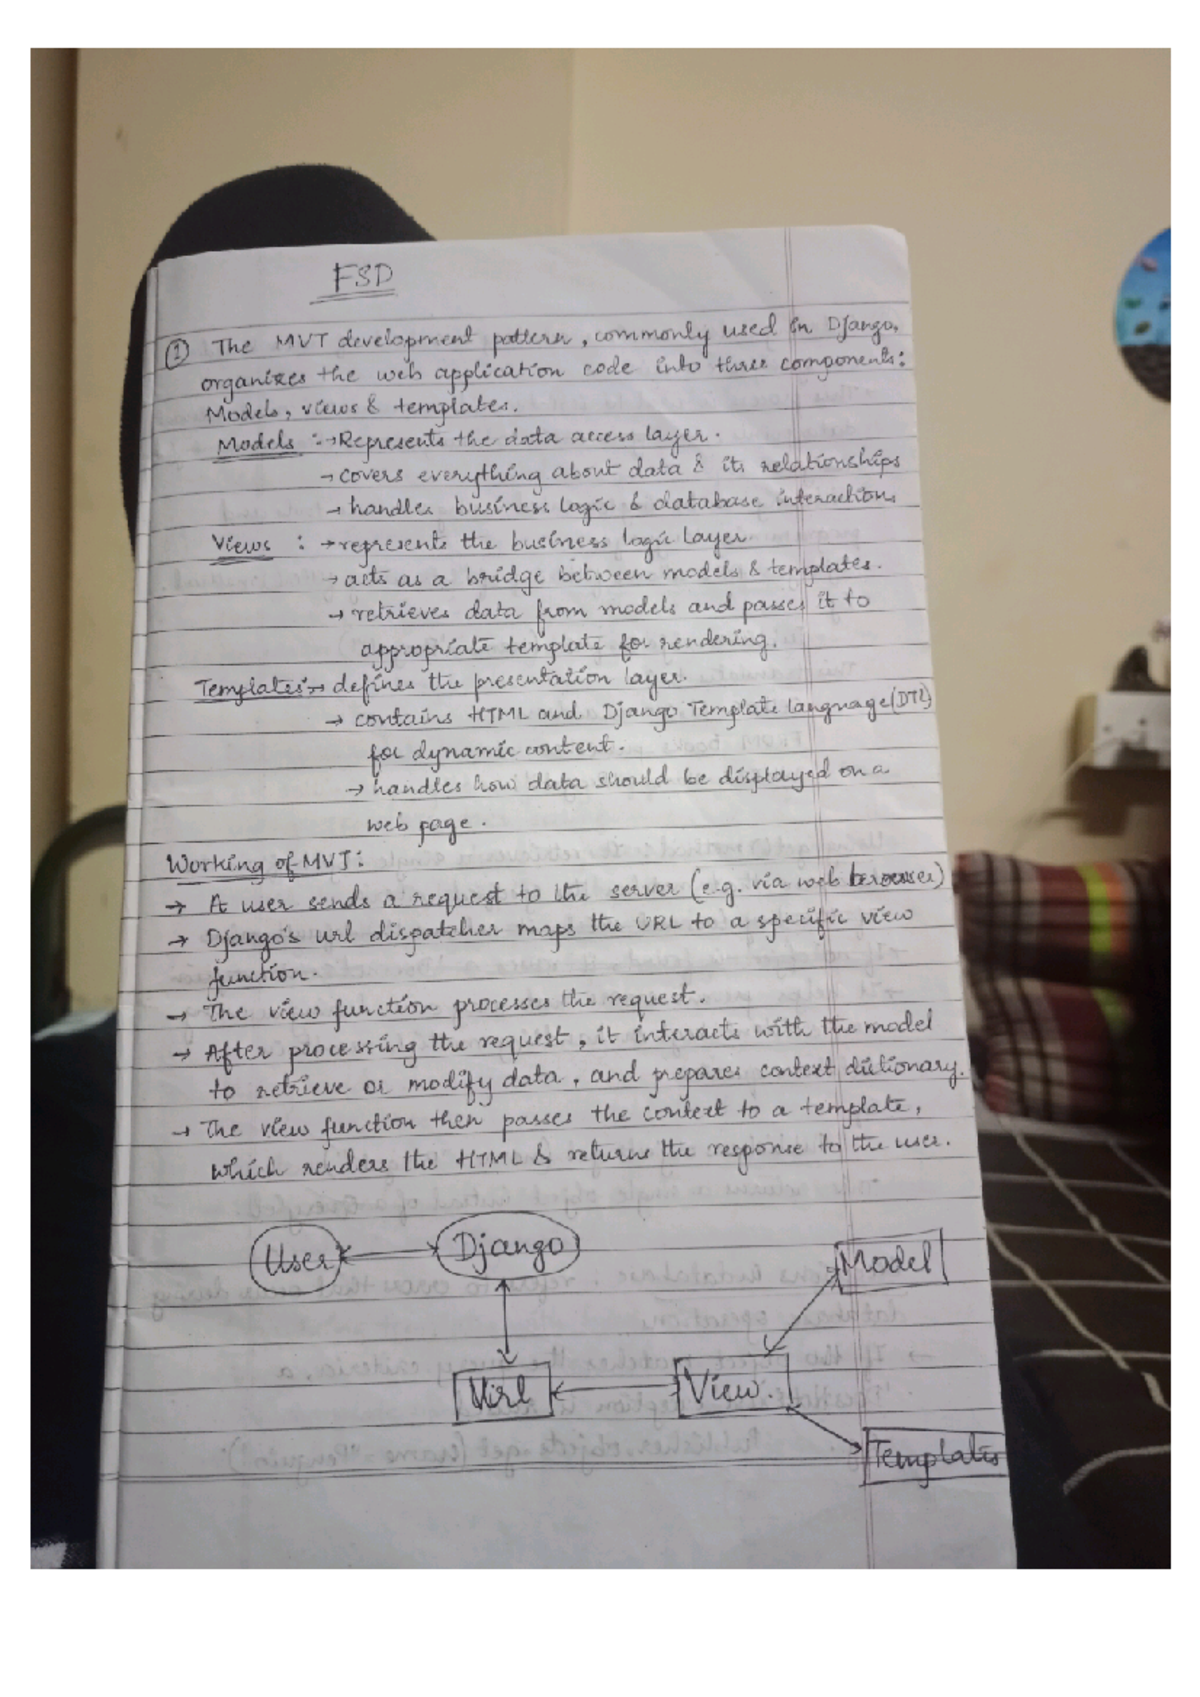 FSD
① The MVT development pattern, commonly used in Django,
organizes the web application code into three components:
Models, views & templates.
Models :→Represents the data access layer.
→covers everything about data & its relationships
→ handles business logic & database interactions
Views : →represents the business logic layer.
→acts as a bridge between models & templates.
→ retrieves data from models and passes it to
appropriate template for rendering.
Templates:→ defines the presentation layer.
→ contains HTML and Django Template language(DTL)
for dynamic content.
→ handles how data should be displayed on a
web page.
Working of MVT:
→ A user sends a request to the server (e.g. via web browser)
→ Django's url dispatcher maps the URL to a specific view
function.
→ The view function processes the request.
→ After processing the request, it interacts with the model
to retrieve or modify data, and prepares context dictionary.
→ The view function then passes the context to a template,
which renders the HTML & returns the response to the user.
User Django Model
Url View.
Templates